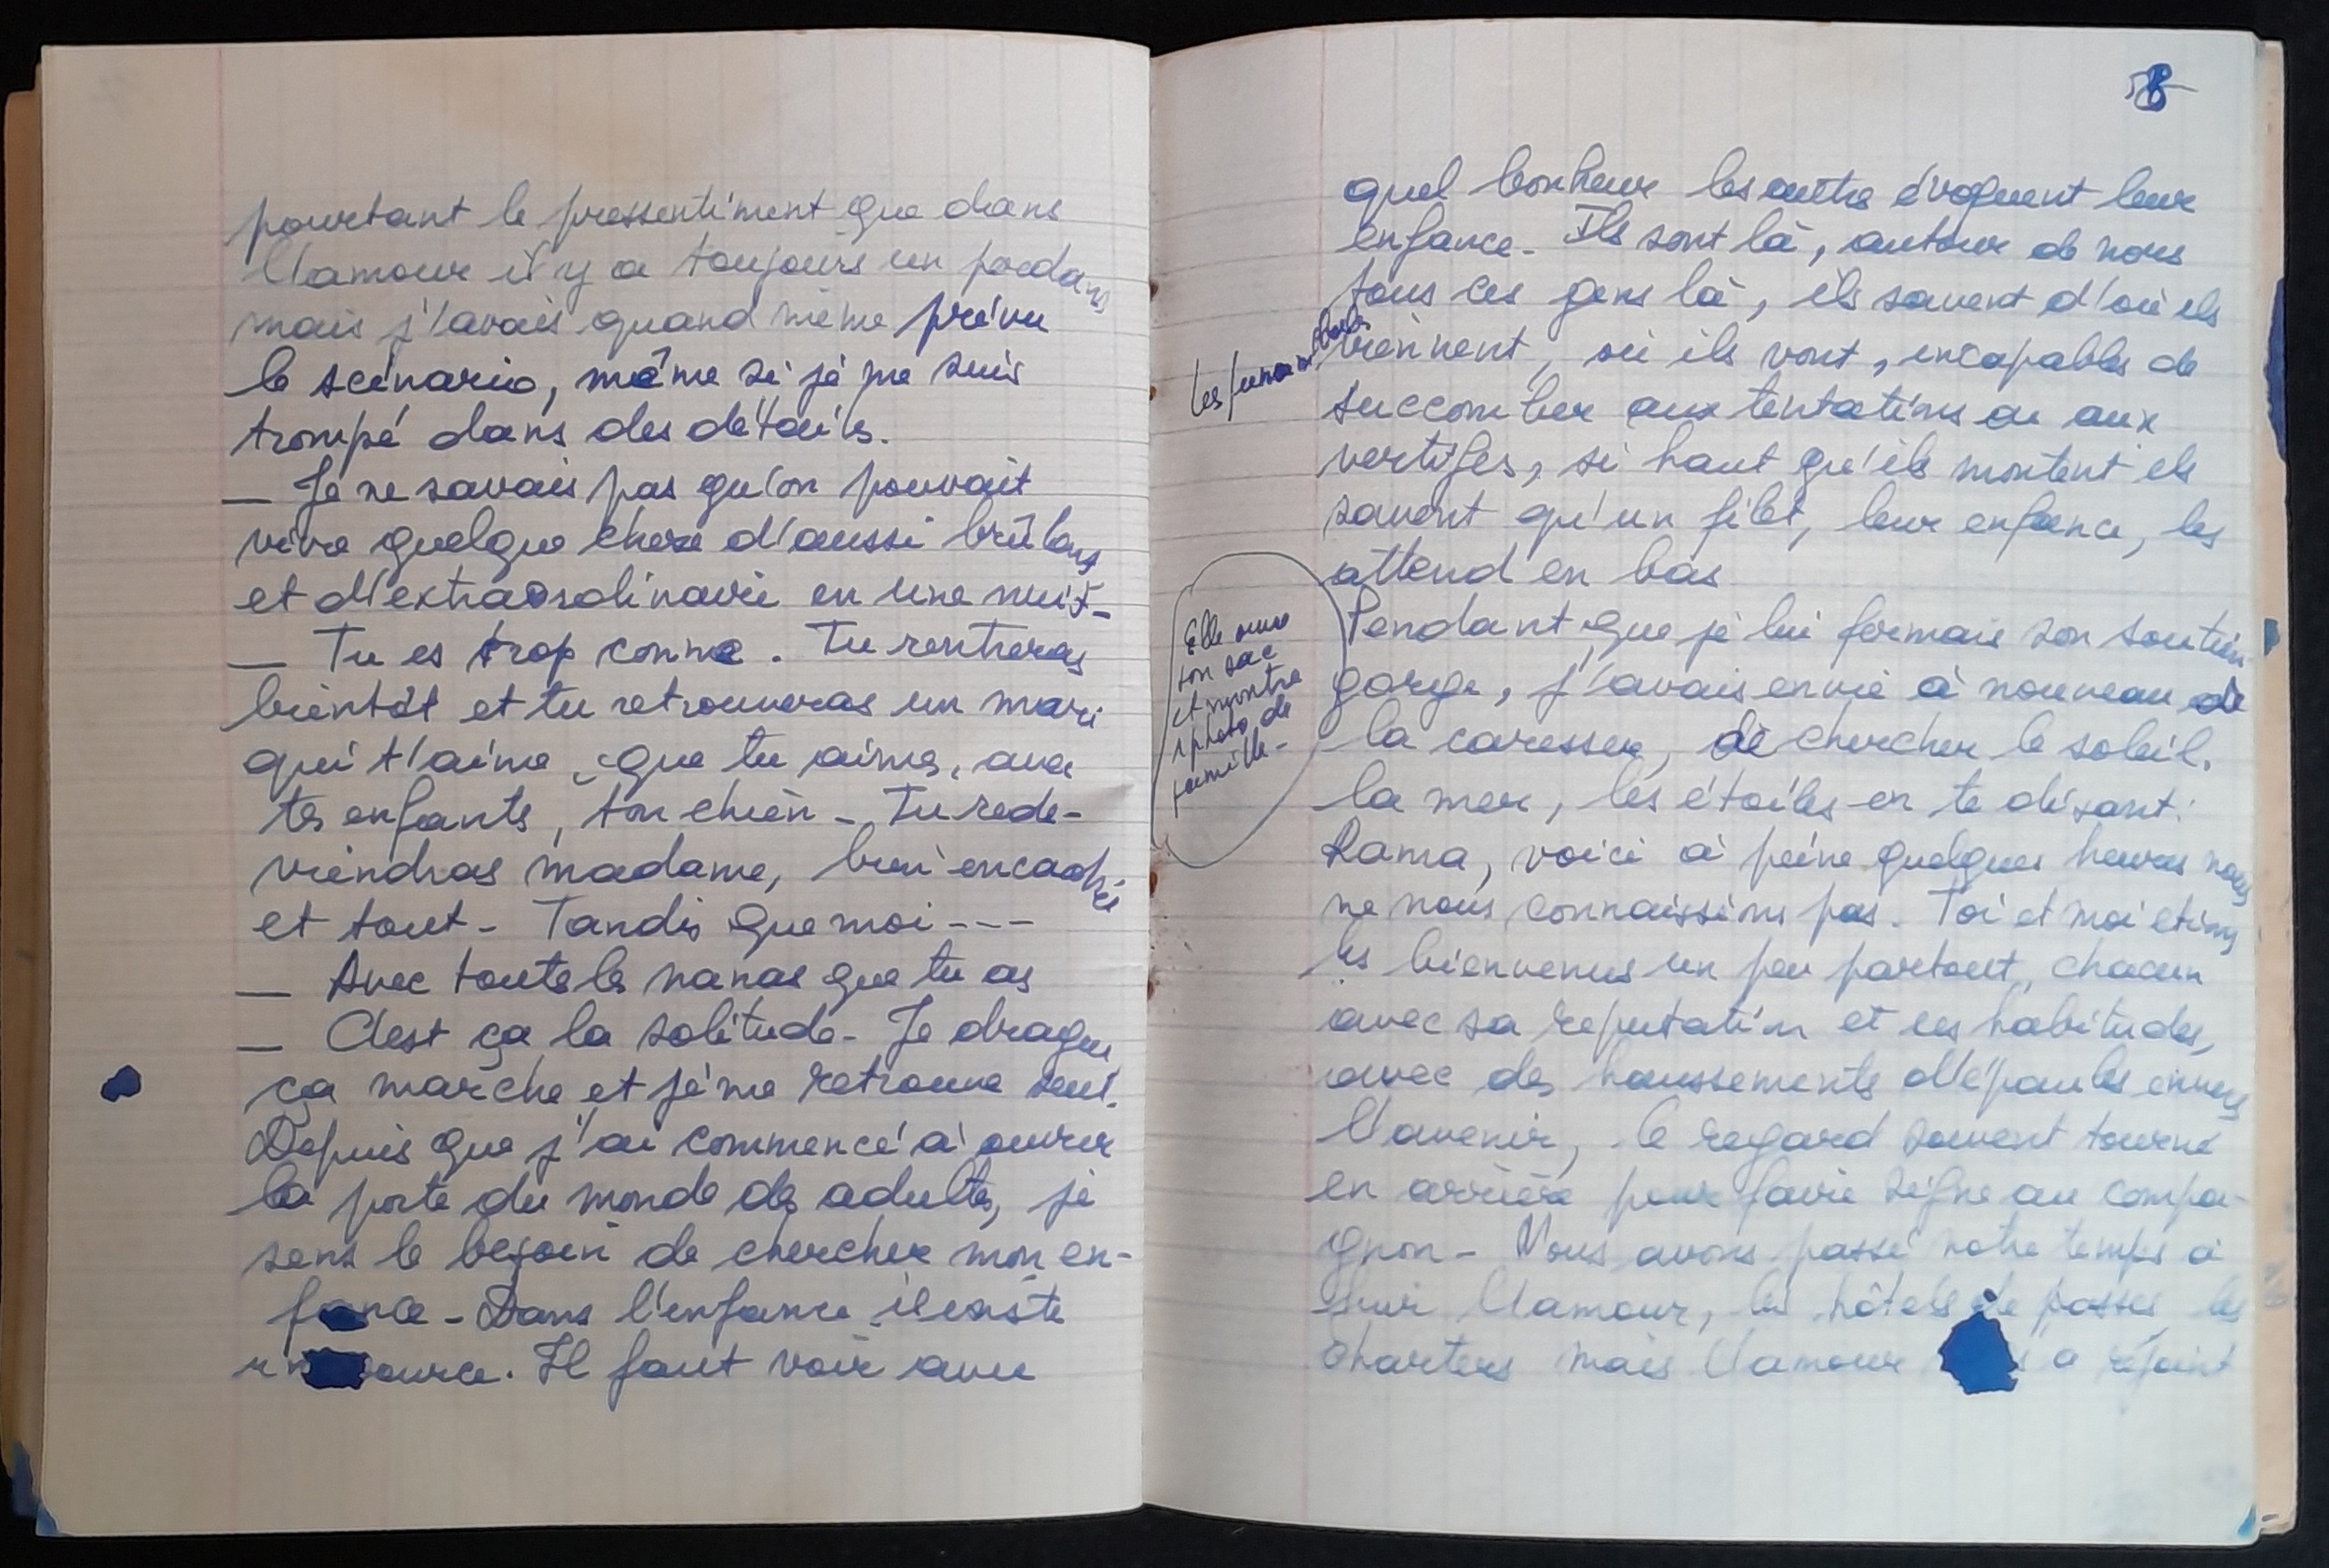 pourtant le pressentiment que dans
l'amour il y a toujours un perdans
mais j'avais quand même prévu
le scénario, même si je me suis
trompé dans des détails.
— Je ne savais pas qu'on pouvait
vivre quelque chose d'aussi brûlant
et d'extraordinaire en une nuit-
— Tu es trop conne. Tu rentreras
bientôt et tu retrouveras un mari
qui t'aime, que tu aimes, avec
tes enfants, ton chien - Tu rede-
viendras madame, bien encadrée
et tout - Tandis que moi ---
— Avec toute les nanas que tu as
— C'est ça la solitude - Je drague
ça marche et je me retrouve seul.
Depuis que j'ai commencé à ouvrir
la porte du monde des adultes, je
sens le besoin de chercher mon en-
fance - Dans l'enfance il existe
ource. Il faut voir avec
8
quel bonheur les autres évoquent leur
enfance - Ils sont là, autour de nous
tous ces gens là, ils savent d'où ils
viennent, où ils vont, incapables de
succomber aux tentations ou aux
vertiges, si haut qu'ils montent ils
savent qu'un filet, leur enfance, les
attend en bas
Les funambules
Elle ouvre
son sac
et montre
1 photo de
famille-
Pendant que je lui fermais son soutien
gorge, j'avais envie à nouveau de
la caresser, de chercher le soleil,
la mer, les étoiles en te disant:
Rama, voici à peine quelques heures nous
ne nous connaissions pas. Toi et moi étions
les bienvenus un peu partout, chacun
avec sa réputation et ses habitudes,
avec des haussements d'épaules envers
l'avenir, le regard souvent tourné
en arrière pour faire signe au compa-
gnon - Nous avons passé notre temps à
fuir l'amour, les hôtels de passes, les
charters mais l'amour a rejoint